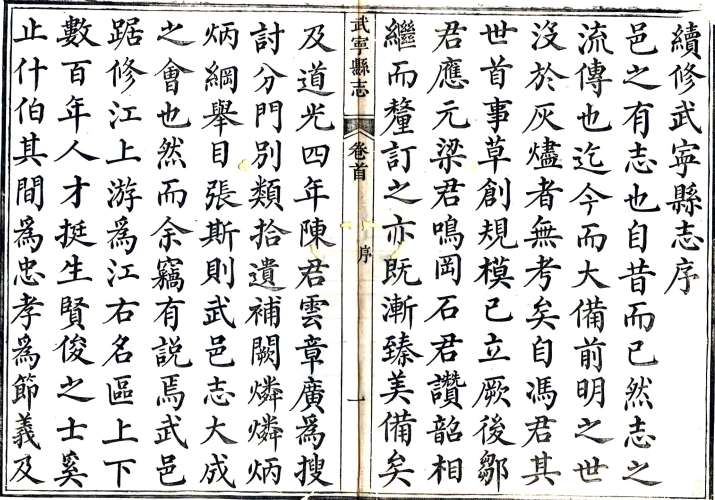 續修武寧縣志序
邑之有志也自昔而已然志之
流傳也迄今而大備前明之世
沒於灰燼者無考矣自馮君其
世首事草創規模已立厥後鄒
君應元梁君鳴岡石君讚韶相
繼而釐訂之亦既漸臻美備矣
武寧縣志
卷首
序
一
及道光四年陳君雲章廣爲搜
討分門別類拾遺補闕燐燐炳
炳綱舉目張斯則武邑志大成
之會也然而余竊有說焉武邑
踞修江上游爲江右名區上下
數百年人才挺生賢俊之士奚
止什伯其間爲忠孝爲節義及